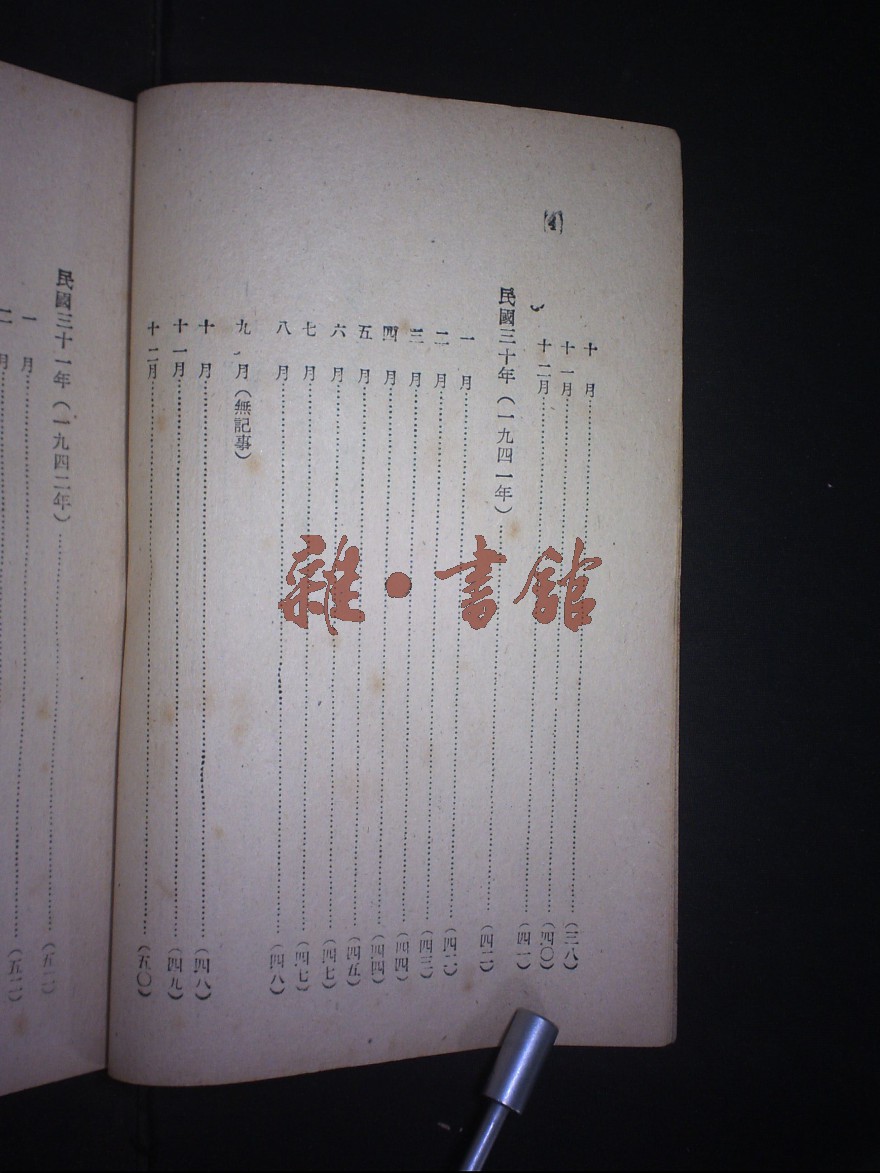 【4】
十月……(三八)
十一月……(四〇)
十二月……(四一)
民國三十年(一九四一年)……(四二)
一月……(四二)
二月……(四三)
三月……(四四)
四月……(四四)
五月……(四五)
六月……(四七)
七月……(四七)
八月……(四八)
九月(無記事)
十月……(四八)
十一月……(四九)
十二月……(五〇)
民國三十一年(一九四二年)……(五二)
一月……(五二)
二月……
雜・書館